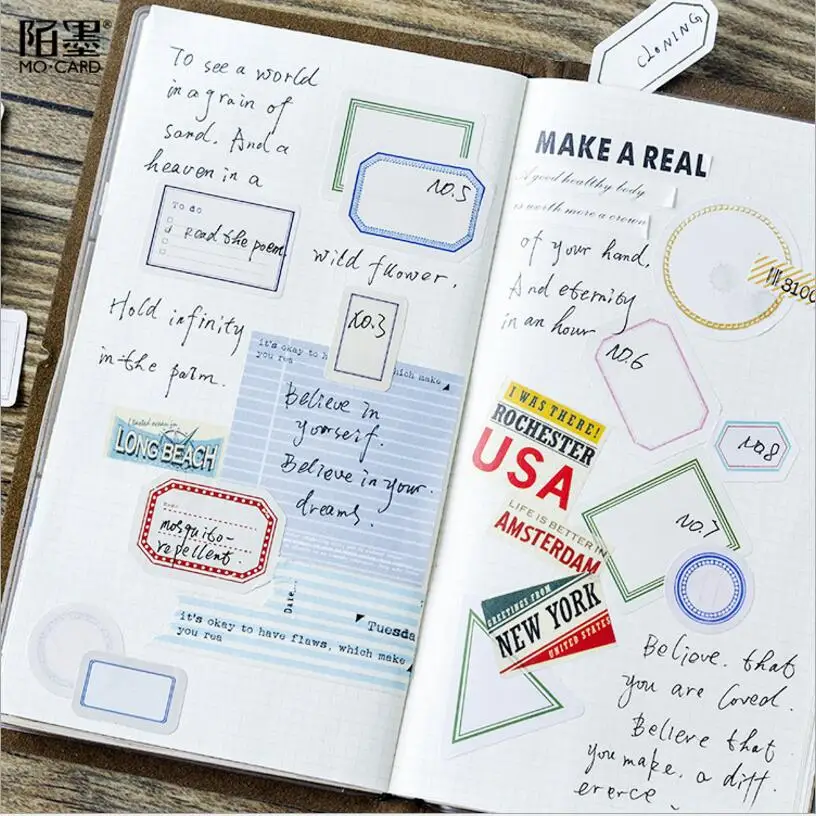 陌墨®
MO·CARD
To see a world
in a grain of
sand. And a
heaven in a
To do
Read the poem.
NO.5
wild flower.
Hold infinity
in the parm.
NO.3
it's okay to h
you rea
which make
Believe in
yourself.
Believe in your
dreams.
LONG BEACH
mosquito-
repellent.
Date
Tuesda
it's okay to have flaws, which make
you rea
CLONING
MAKE A REAL
A good healthy body
is worth more a crown
of your hand.
And eternity
in an hour
8100
NO.6
NO.8
I WAS THERE!
ROCHESTER
USA
LIFE IS BETTER IN
AMSTERDAM
NO.7
GREETINGS FROM
NEW YORK
UNITED STATES
Believe. that
you are loved.
Believe that
you make. a diff.
ererce